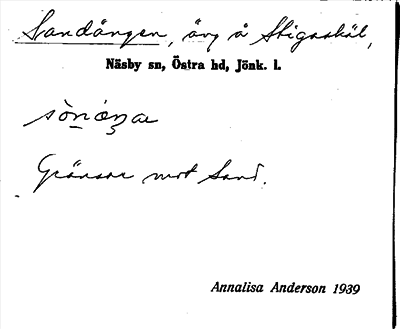 Sandängen, äng å Stigaskäl,
Näsby sn, Östra hd, Jönk. l.
Gränsar mot Sand.
Annalisa Anderson 1939